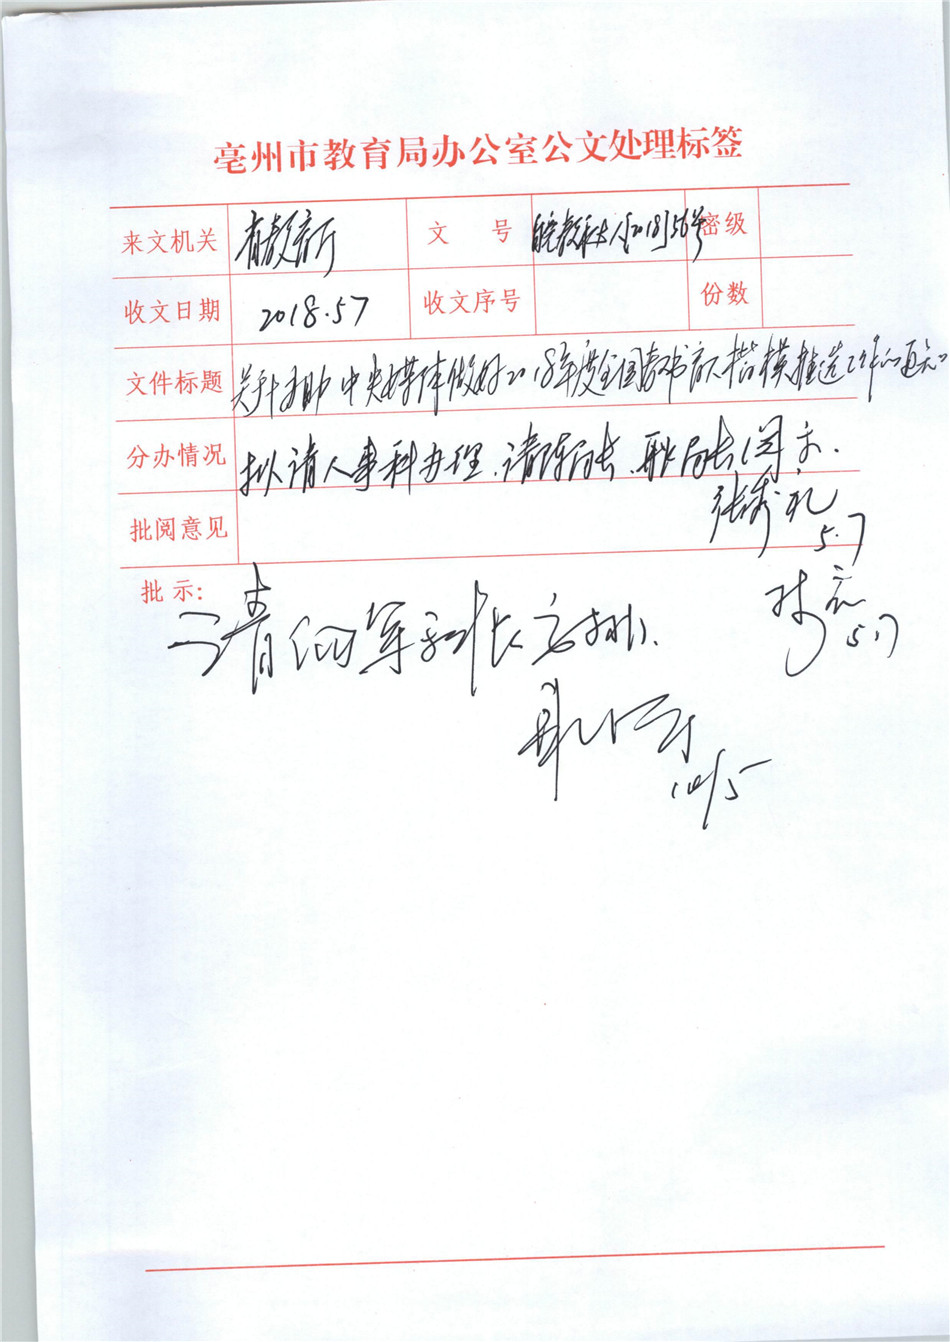 亳州市教育局办公室公文处理标签
来文机关 省教育厅 文 号 皖教秘人〔2018〕56号 密级
收文日期 2018.5.7 收文序号 份数
文件标题 关于协助中央媒体做好2018年度全国教书育人楷模推选工作的通知
分办情况 拟请人事科办理，请陈局长、耿局长阅示.
批阅意见
5.7
批示:
5.7
请 军科长安排.
10/5